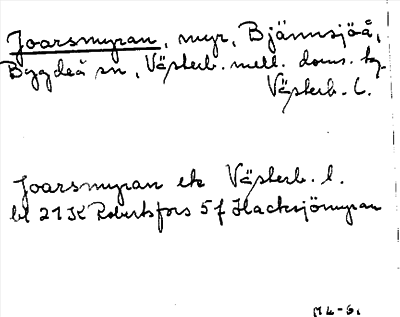 Joarsmyran, myr, Bjännsjöå,
Bygdeå sn, Västerb. mell. doms. tg.
Västerb. l.
Joarsmyran ek Västerb. l.
bl 21K Robertsfors 5f Hacksjömyran
ML-S.